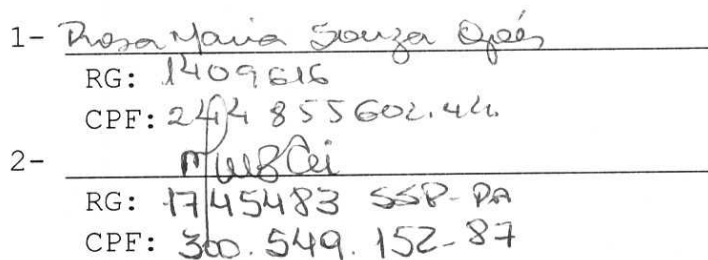 1- Rosa Maria Souza
RG: 1409616
CPF: 244 855602.44.
2-
RG: 1745483 SSP-PA
CPF: 300.549.152-87